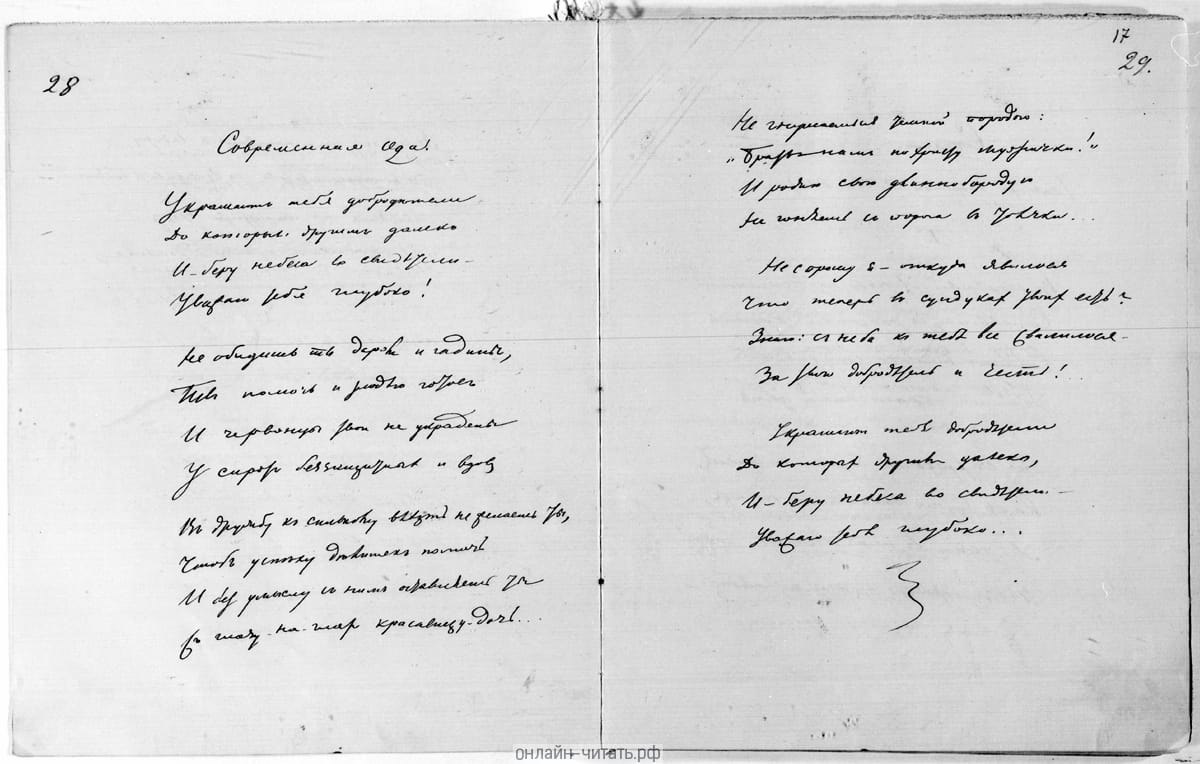 28
Современная ода.
Украшаютъ тебя добродѣтели
До которыхъ другимъ далеко
И – беру небеса во свидѣтели –
Уважаю тебя глубоко!
Не обидишь ты даромъ и гадины,
Ты помочь и злодѣю готовъ
И червонцы твои не украдены
У сиротъ беззащитныхъ и вдовъ
Въ дружбу къ сильному влѣзть не желаешь ты,
Чтобъ успѣху дѣлишекъ помочь
И безъ умыслу съ нимъ оставляешь ты
Съ глазу-на-глазъ красавицу-дочь...
17
29.
Не гнушаешься темной породою:
„Братья намъ по Христу мужички!"
И родню свою длиннобородую
Не гоняешь съ порога въ толчки...
Не спрошу я – откуда явилося
Что теперь въ сундукахъ твоихъ есть?
Знаю: съ неба къ тебѣ все свалилося –
За твою добродѣтель и честь!..
Украшаютъ тебя добродѣтели
До которыхъ другимъ далеко,
И – беру небеса во свидѣтели –
Уважаю тебя глубоко...
онлайн-читать.рф